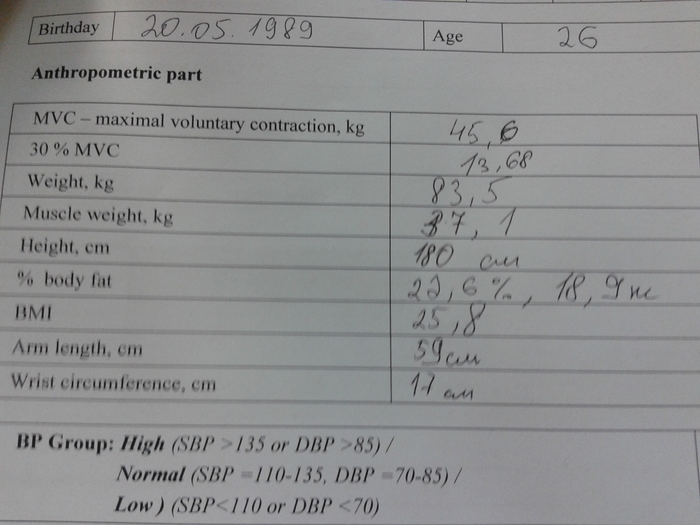 Birthday 20.05.1989 Age 26
Anthropometric part
MVC – maximal voluntary contraction, kg 45,6
30 % MVC 13,68
Weight, kg 83,5
Muscle weight, kg 37,1
Height, cm 180 см
% body fat 22,6%, 18,9 кг
BMI 25,8
Arm length, cm 59 см
Wrist circumference, cm 17 см
BP Group: High (SBP >135 or DBP >85) /
Normal (SBP =110-135, DBP =70-85) /
Low ) (SBP<110 or DBP <70)